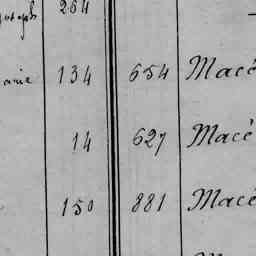 264
134 654 Macé
14 627 Macé
150 881 Macé